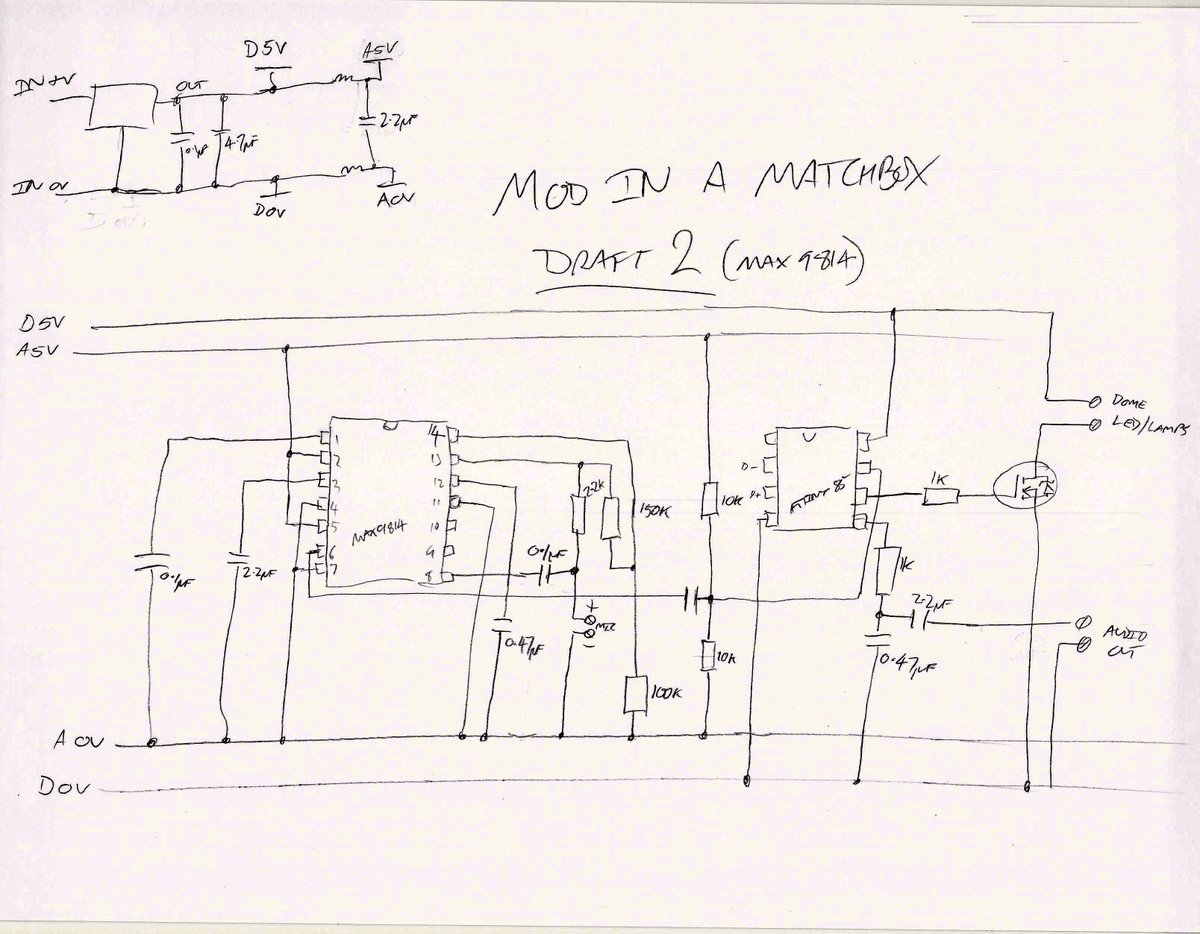 D5V
A5V
IN +V
OUT
0.1µF
4.7µF
2.2µF
IN 0V
D0V
A0V
MOD IN A MATCHBOX
DRAFT 2 (MAX9814)
D5V
A5V
DOME
LED/LAMPS
1
2
3
4
5
6
7
MAX9814
14
13
12
11
10
9
8
2.2K
150K
10K
D-
D+
1K
0.1µF
2.2µF
0.1µF
1K
+
MIC
-
0.47µF
10K
100K
2.2µF
0.47µF
AUDIO
OUT
A 0V
D0V